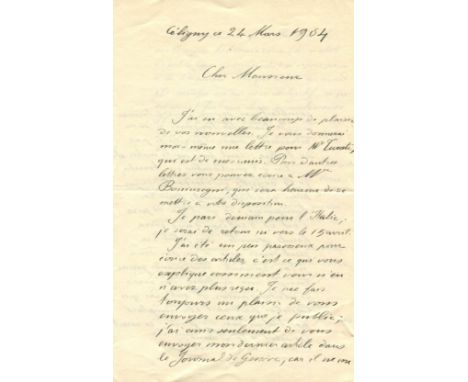 Céligny ce 24 Mars 1904
Cher Monsieur
J'ai eu avec beaucoup de plaisir
de vos nouvelles. Je vous donnerai
moi-même une lettre pour Mr
qui est de mes amis. Pour d'autres
lettres vous pouvez écrire à Mr
qui sera heureux de se
mettre à votre disposition.
Je pars demain pour l'Italie;
je serai de retour ici vers le 15 avril.
J'ai été un peu paresseux pour
écrire des articles c'est ce qui vous
explique comment vous n'en
n'avez plus reçu. Je me fais
toujours un plaisir de vous
envoyer ceux que je publie;
j'ai omis seulement de vous
envoyer mon dernier article dans
le Journal de Genève, car il ne me